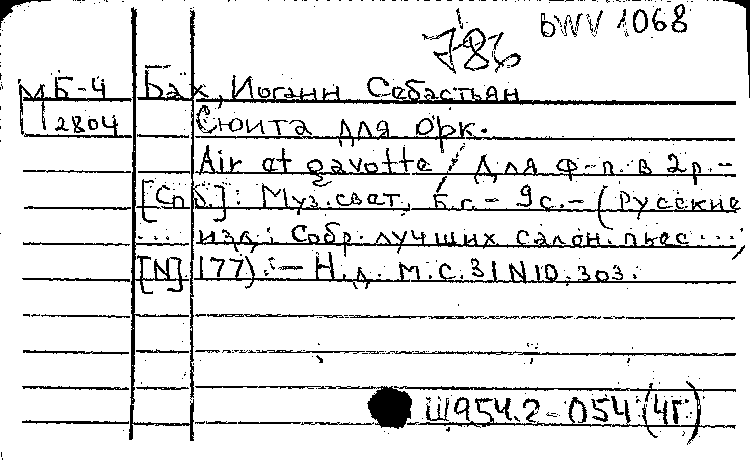 786 bWV 1068
М Б-4 Бах, Иоганн Себастьян
2804 Сюита для орк.
Air et gavotte / Для ф-п. в 2р. -
[Спб]: Муз. сват, Б.г. - 9с. - (Русские
... изд.: Собр. лучших салон. пьес ...;
[N] 177). - Н.д. м.с. 31 N 10, 303.
Ш954.2-054 (4Г)